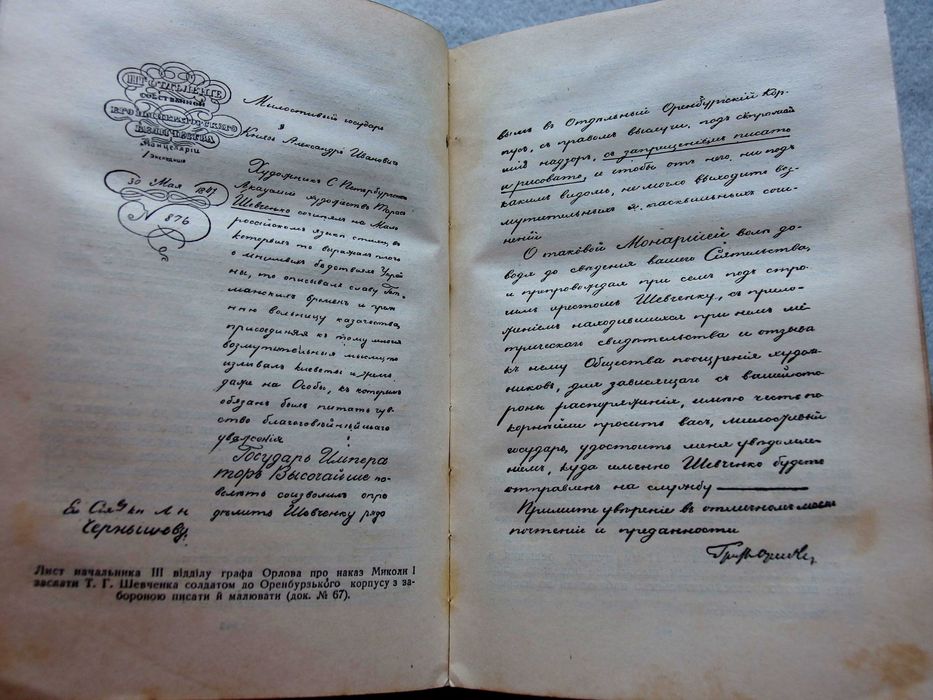 III ОТДѢЛЕНІЕ
СОБСТВЕННОЙ
ЕГО ИМПЕРАТОРСКАГО
ВЕЛИЧЕСТВА
Канцеляріи
1 Экспедиція
30 Мая 1847
№ 876
Милостивый государь
Князь Александръ Ивановичъ
Художникъ С Петербургской
Академіи художествъ Тарасъ
Шевченко сочинялъ на Мало
россійскомъ языкѣ стихи, въ
которыхъ то выражалъ плачъ
о мнимыхъ бѣдствіяхъ Украй
ны, то описывалъ славу Гет-
манскихъ временъ и преж
нюю вольницу казачества,
присоединяя къ тому мысли
возмутительныя
изливалъ клеветы и желчь
даже на Особы, къ которымъ
обязанъ былъ питать чув
ство благоговѣйнѣйшаго
уваженія
Государь Импера
торъ Высочайше по
велѣть соизволилъ опре
дѣлить Шевченку рядо
Его Сіят
Чернышеву
вымъ въ Отдѣльный Оренбургскій Кор-
пусъ, съ правомъ выслуги, подъ строжай
шій надзоръ, съ запрещеніемъ писать
и рисовать, и чтобы отъ него, ни подъ
какимъ видомъ, не могло выходить воз-
мутительныхъ и пасквильныхъ сочи-
неній
О таковой Монаршей волѣ до-
водя до свѣденія вашего Сіятельства,
и препровождая при семъ подъ стро-
гимъ арестомъ Шевченку, съ прило-
женіемъ находившихся при немъ ме-
трическаго свидѣтельства и отзыва
къ нему Общества поощренія худож-
никовъ, для зависящаго съ вашей сто
роны распоряженія, имѣю честь по
корнѣйше просить васъ, милостивый
государь, удостоить меня увѣдомле-
ніемъ, куда именно Шевченко будетъ
отправленъ на службу
Примите увѣреніе въ отличномъ моемъ
почтеніи и преданности
Графъ Орловъ
Лист начальника III відділу графа Орлова про наказ Миколи І
заслати Т. Г. Шевченка солдатом до Оренбурзького корпусу з за-
бороною писати й малювати (док. № 67).